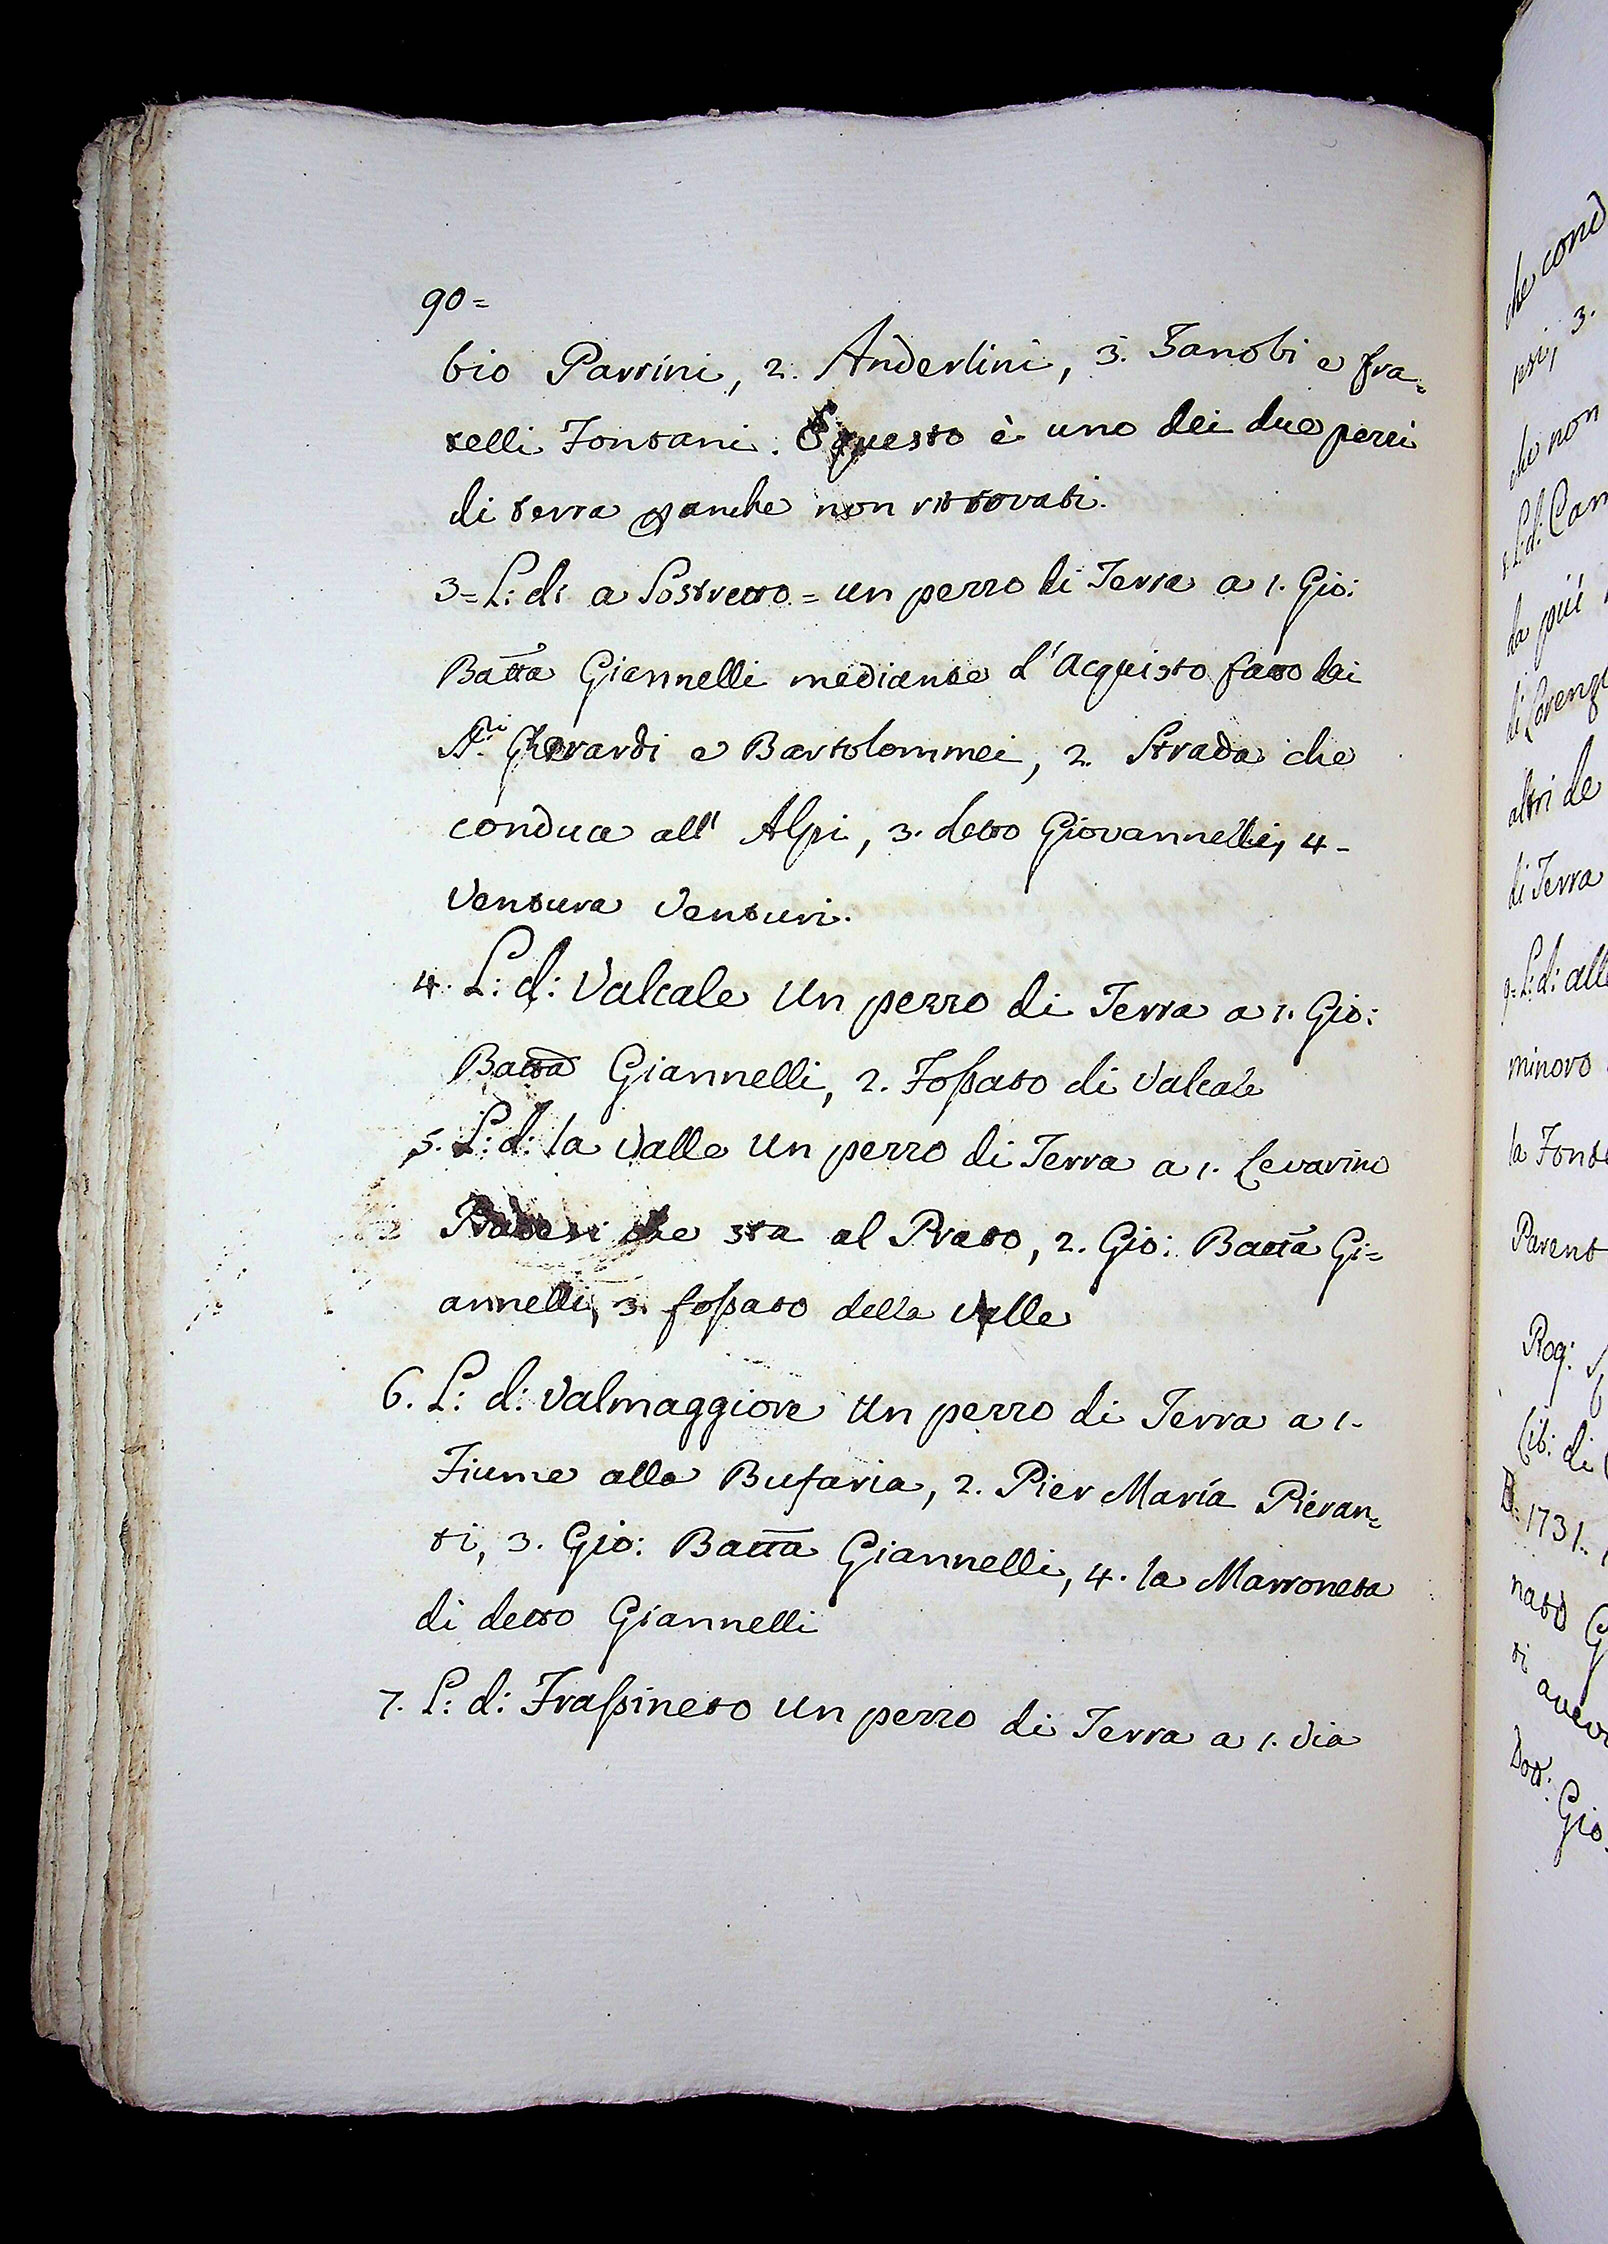 90=
bio Parrini, 2. Anderlini, 3. Zanobi e fra=
telli Fontani. E questo è uno dei due pezzi
di terra p anche non ritrovati.
3= L: d: a Sostretto = un pezzo di Terra a 1. Gio:
Batta Giannelli mediante l'acquisto fatto dai
SS.ri Gherardi e Bartolommei, 2. Strada che
conduce all' Alpi, 3. detto Giovannelli, 4-
Ventura Venturi.
4. L: d: Valcale Un pezzo di Terra a 1. Gio:
Batta Giannelli, 2. Fossato di Valcale
5. L: d: la Valle Un pezzo di Terra a 1. Levarino
che sta al Prato, 2. Gio: Batta Gi=
annelli, 3. fossato della Valle
6. L: d: Valmaggiore Un pezzo di Terra a 1.
Fiume alla Bufaria, 2. Pier Maria Pieran=
ti, 3. Gio: Batta Giannelli, 4. la Marroneta
di detto Giannelli
7. L: d: Frassineto Un pezzo di Terra a 1. Via
che cond
resi, 3.
che non
8. L: d: Cam
da più
di Lorenzo
altri de
di Terra
9= L: d: alle
minoro
la Fonte
Parent
Rog:
lib: di
D: 1731.
nato G
ti
Dott:
Gio.